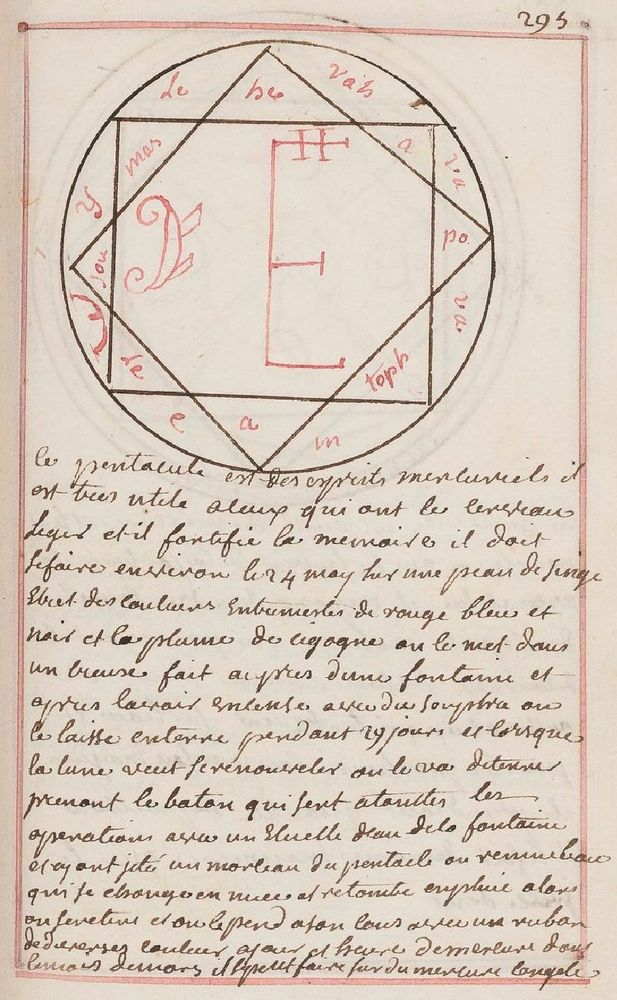 295
Je he vah
mas a va
y
sou po
va
le toph
e a m
E
le pentacule est des esprits mercuriels il
est tres utile a ceux qui ont le cerveau
leger et il fortifie la memoire il doit
se faire environ le 24 may sur une peau de singe
et des couleurs entremeslés de rouge bleu et
noir et la plume de cigogne on le met dans
un creux fait aupres dune fontaine et
apres lavoir encense avec du souphre on
le laisse enterre pendant 29 jours et lorsque
la lune veut se renouveler on le va deterrer
prenant le baton qui sert a touttes les
operations avec un Ecuelle deau de la fontaine
et ayant jeté un morceau du pentacle on remue leau
qui se change en nuee et retombe en pluie alors
on se retire et on le pend a son cous avec un ruban
de diverses couleur a jour et heure de mercure dans
le mois de mars il se peut faire sur du mercure congelé